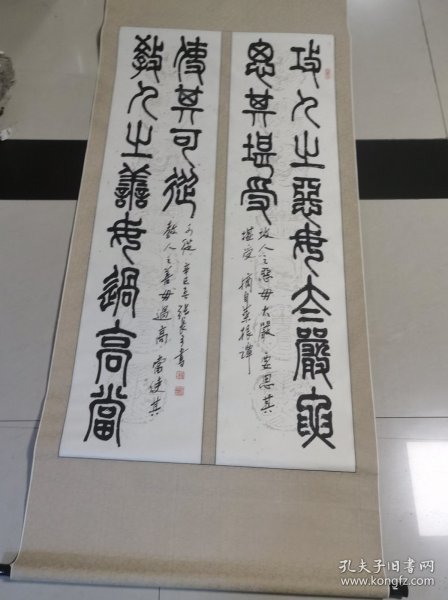 攻人之惡毋太嚴要
思其堪受
攻人之惡毋太嚴要思其
堪受 摘自菜根譚
教人之善毋過高當
使其可從
教人之善毋過高當使其
可從 辛巳
孔夫子旧书网